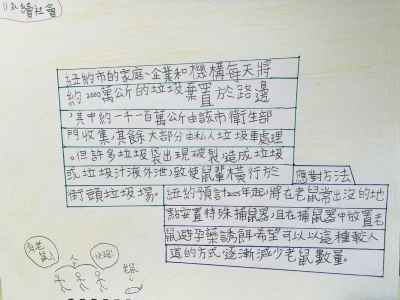 紐約市的家庭、企業和機構每天將
約2000萬公斤的垃圾棄置於路邊
,其中約一千一百萬公斤由該市衛生部
門收集,其餘大部分由私人垃圾車處理
。但許多垃圾袋出現破裂,造成垃圾
或垃圾汁液外泄,致使鼠輩橫行於
街頭垃圾場。
應對方法
紐約預計2025年起,將在老鼠常出沒的地
點安置特殊捕鼠器,且在捕鼠器中放置老
鼠避孕藥誘餌,希望可以以這種較人
道的方式逐漸減少老鼠數量。
有老
鼠!
快逃!